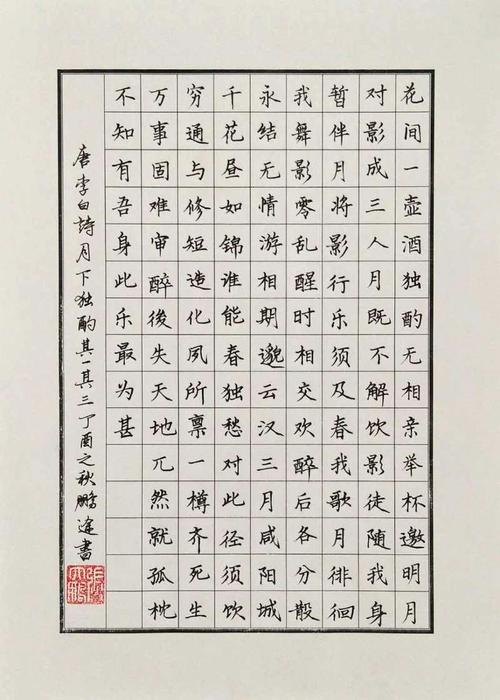 花间一壶酒独酌无相亲举杯邀明月
对影成三人月既不解饮影徒随我身
暂伴月将影行乐须及春我歌月徘徊
我舞影零乱醒时相交欢醉后各分散
永结无情游相期邈云汉三月咸阳城
千花昼如锦谁能春独愁对此径须饮
穷通与修短造化夙所禀一樽齐死生
万事固难审醉後失天地兀然就孤枕
不知有吾身此乐最为甚
唐李白詩月下独酌其一其三丁酉之秋鹏書